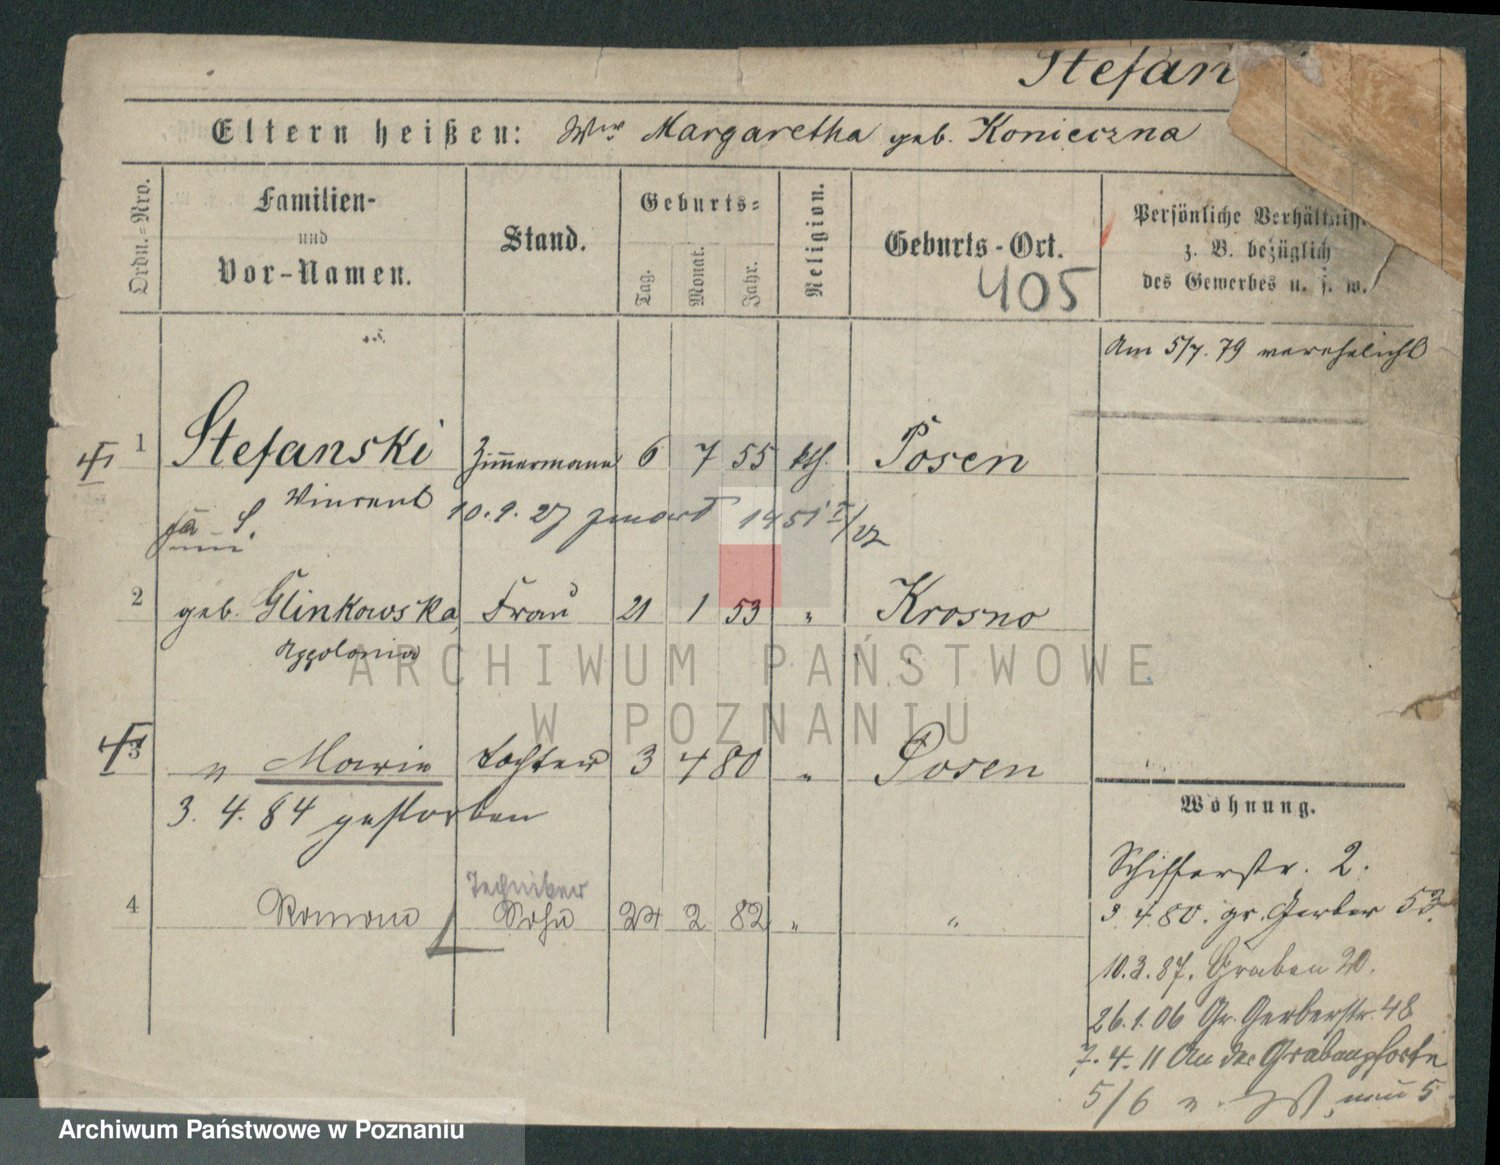 Stefan
Eltern heißen: Wwe Margaretha geb. Konieczna
Ordn.-Nro.
Familien-
und
Vor-Namen.
Stand.
Geburts-
Tag.
Monat.
Jahr.
Religion.
Geburts-Ort.
405
Persönliche Verhältnisse
z. B. bezüglich
des Gewerbes u. s. w.
Am 5/7. 79 verehelicht
1 Stefanski Zimmermann 6 7 55 kth. Posen
Vincent
10. 9. 27
2 geb. Glinkowska, Frau 21 1 53 " Krosno
Appolonia
3 " Marie Tochter 3 4 80 " Posen
3. 4. 84 gestorben
Techniker
4 Roman Sohn 24 2 82 " "
Wohnung.
Schifferstr. 2.
3. 4 80. gr. Gerber 53.
10.3.87. Graben 20.
26.1.06 Gr. Gerberstr. 48
7. 4. 11 An der Grabenpforte
5/6
ARCHIWUM PAŃSTWOWE
W POZNANIU
Archiwum Państwowe w Poznaniu